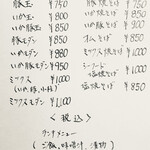 豚玉 ¥750
いか玉 ¥800
いか豚玉 ¥850
豚モダン ¥850
いかモダン ¥900
いか豚モダン ¥950
ミックス ¥1000
(いか、豚、小柱)
ミックスモダン ¥1100
豚焼そば ¥750
いか焼そば ¥800
いか豚焼そば ¥850
オムそば ¥900
ミックス焼そば ¥1000
シーフード
塩焼そば ¥1000
塩焼そば ¥850
<税込>
ランチメニュー
(ご飯、味噌汁、漬物)